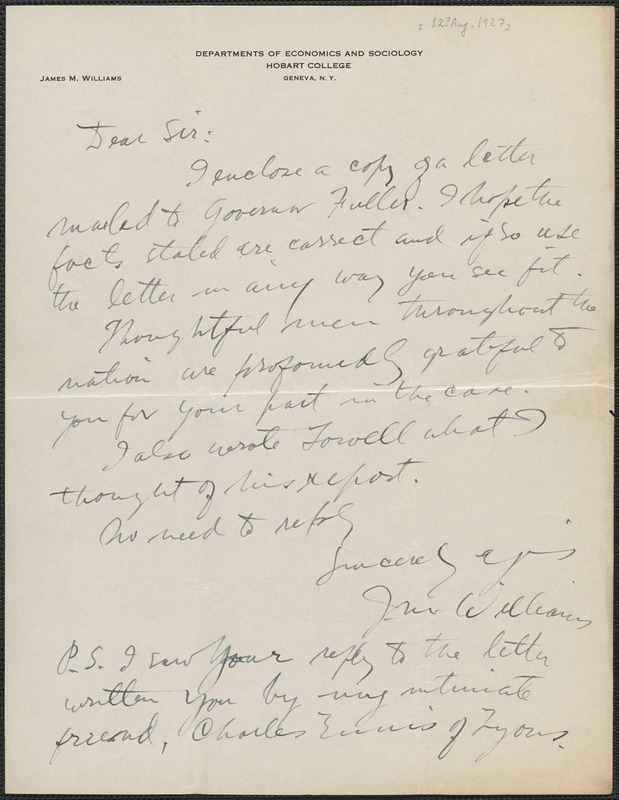 [12? Aug. 1927]
DEPARTMENTS OF ECONOMICS AND SOCIOLOGY
HOBART COLLEGE
JAMES M. WILLIAMS GENEVA, N. Y.
Dear Sir:
I enclose a copy of a letter
mailed to Governor Fuller. I hope the
facts stated are correct and if so use
the letter in any way you see fit.
Thoughtful men throughout the
nation are profoundly grateful to
you for your part in the case.
I also wrote Lowell what I
thought of his report.
No need to reply
Sincerely yours
Jas Williams
P.S. I saw your reply to the letter
written you by my intimate
friend, Charles Ennis of Lyons.